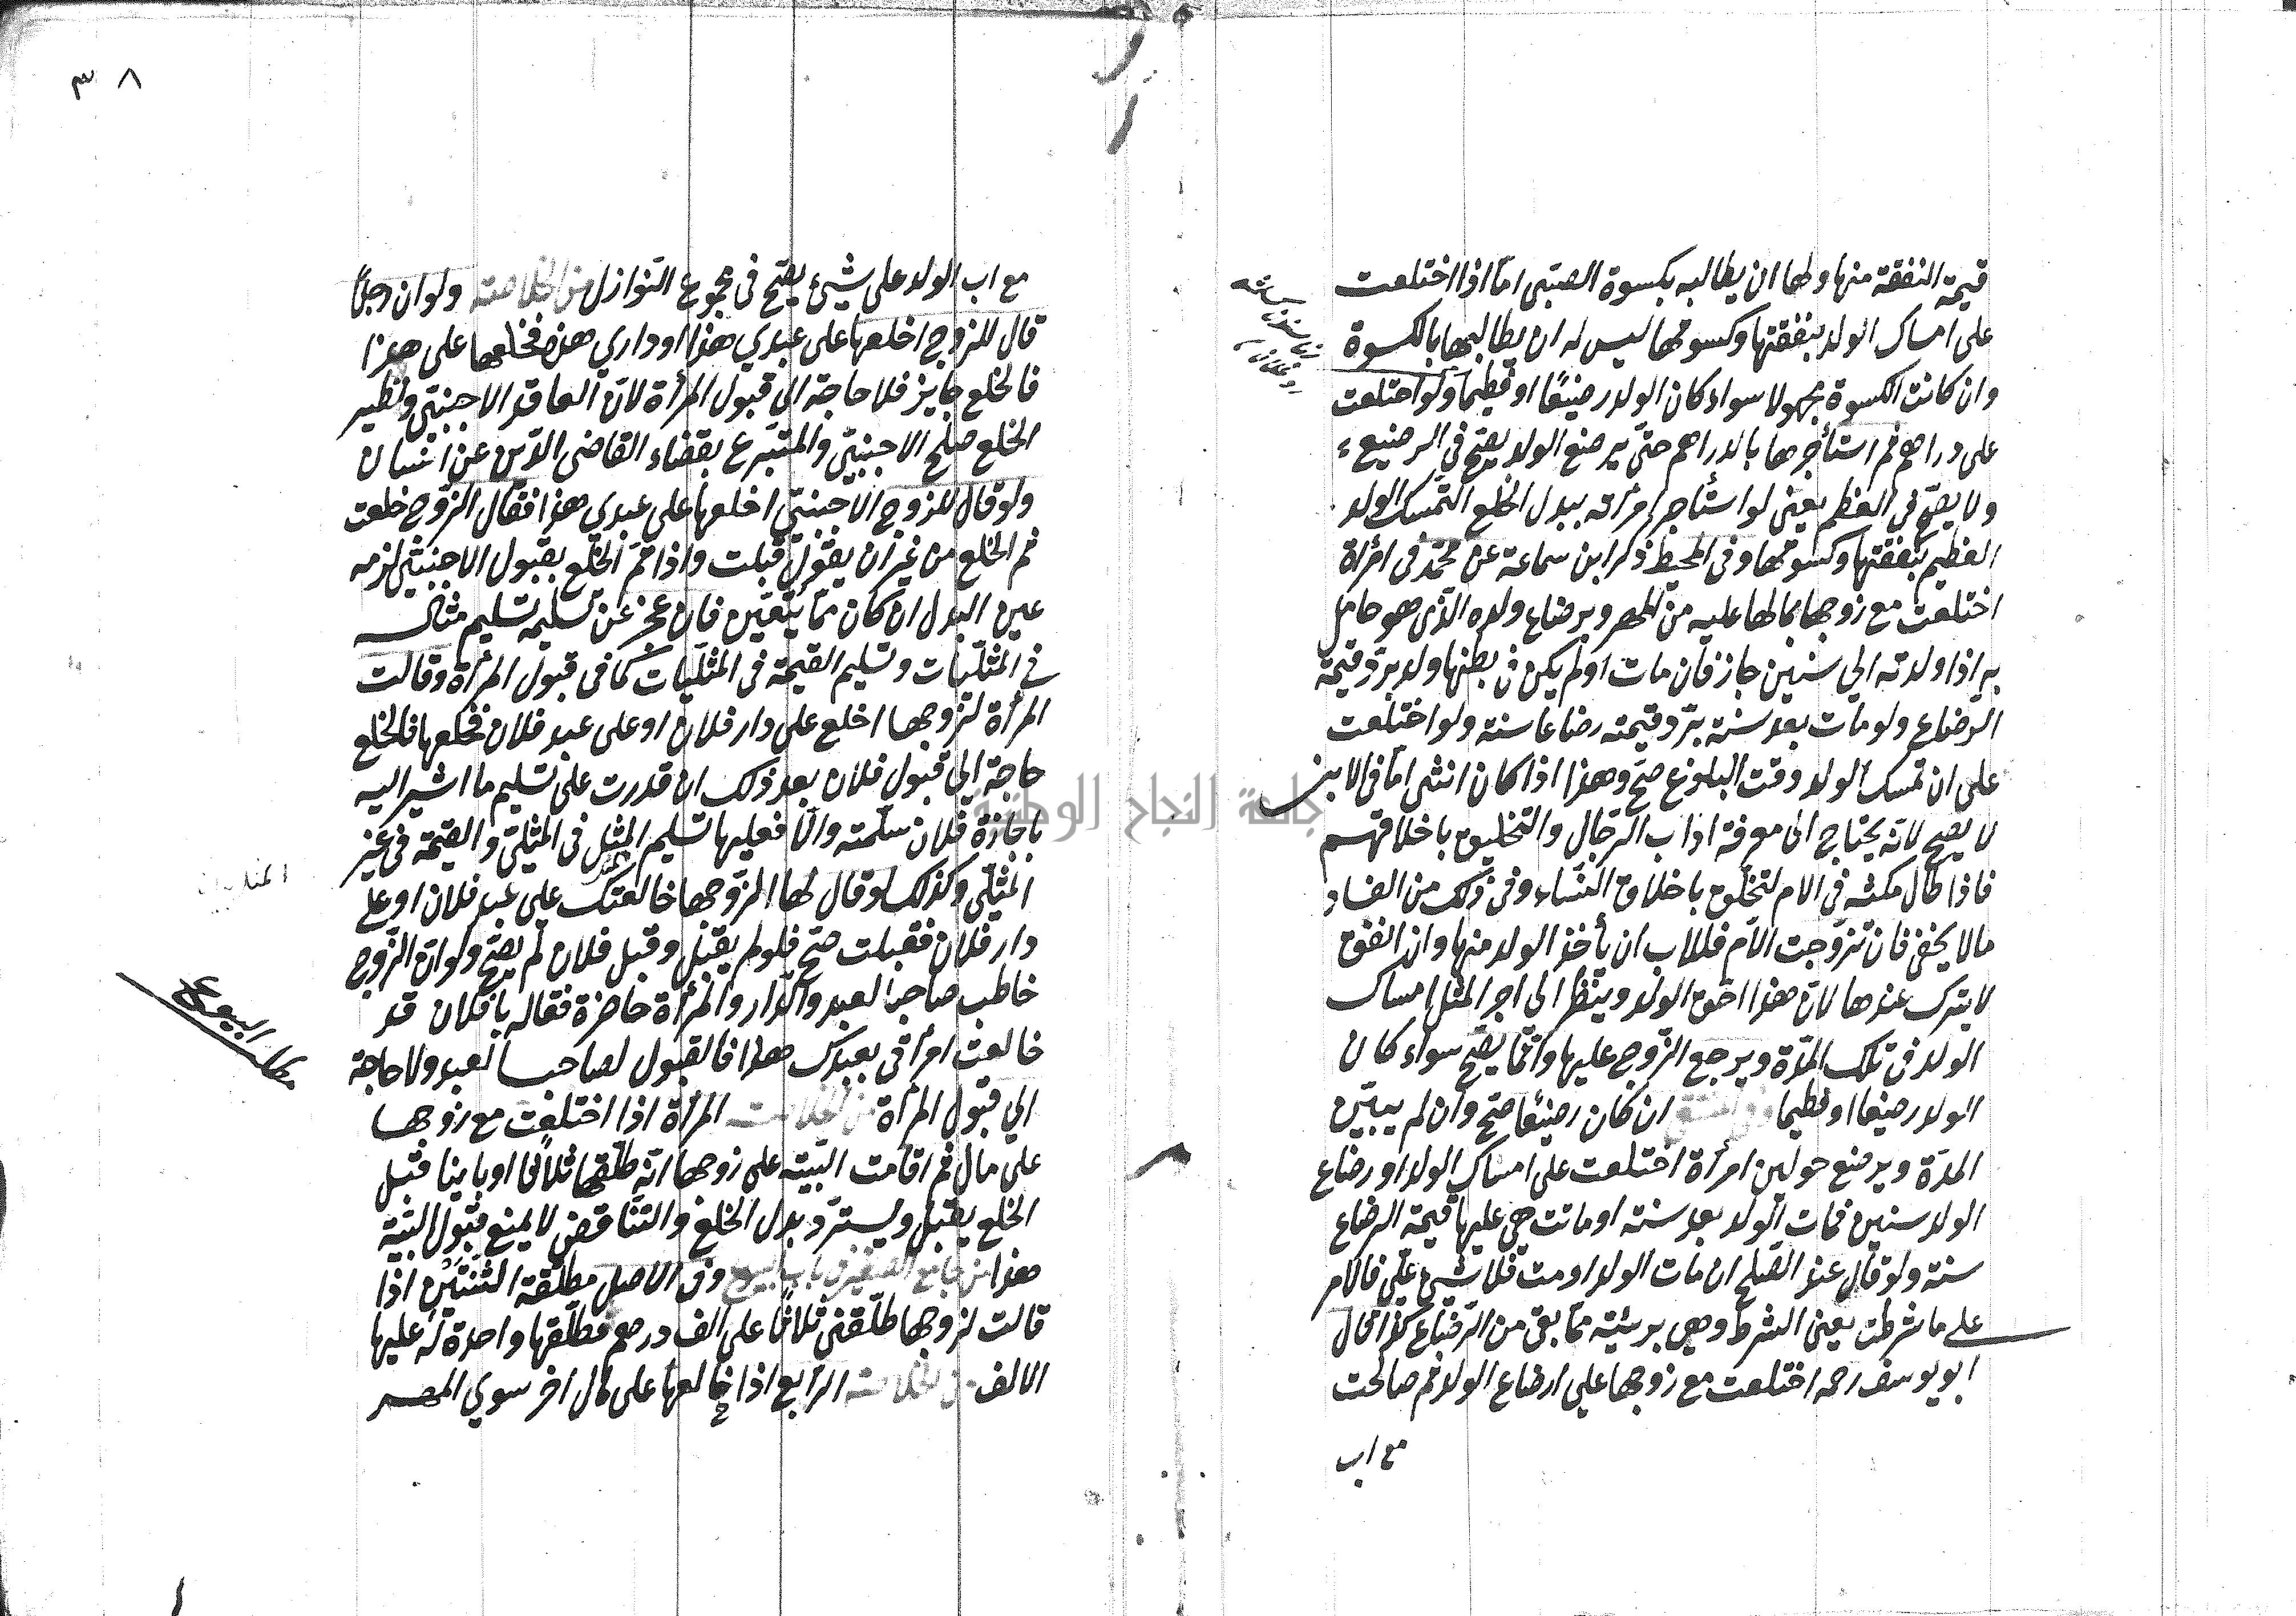 قيمة النفقة منها ولها ان يطالبه بكسوة الصبي اما اذا اختلعت
على امساك الولد بنفقتها وكسوتها ليس له ان يطالبها بالكسوة
وان كانت الكسوة مجهولا سواء كان الولد رضيعًا او فطيما ولو اختلعت
على دراهم ثم استأجرها بالدراهم حتى يرضع الولد يصح في الرضيع
ولا يصح في الفطم يعنى لو استأجر امرأته ببدل الخلع التمسك الولد
الفطيم بنفقتها وكسوتها وفى المحيط ذكر ابن سماعة عن محمد فى امرأة
اختلعت مع زوجها بمالها عليه من المهر وبرضاع ولده الذى هو حامل
به اذا ولدته الى سنين جاز فان مات او لم يكن في بطنها ولد برد قيمة
الرضاع ولو مات بعد سنة برد قيمته رضاعا سنة ولو اختلعت
على ان تمسك الولد وقت البلوغ صح وهذا اذا كان انثى اما فى الابن
لا يصح لانه يحتاج الى معرفة اداب الرجال والتخليق باخلاقهم
فاذا طال مكثه فى الام لتخلق باخلاق النساء وفى ذلك من الفساد
مالا يخفى فان تزوجت الام فللاب ان يأخذ الولد منها وان اتفق
لا يترك عندها لان هذا احق الولد وينظر الى اجر المثل امساك
الولد فى تلك المدة ويرجع الزوج عليها وانما يصح سواء كان
الولد رضيعا او فطيما ان كان رضيعًا صح وان لم يبين
المدة ويرضع حولين امرأة اختلعت على امساك الولد او رضاع
الولد سنين فمات الولد بعد سنة او ماتت هي عليها قيمة الرضاع
سنة ولو قال عند الصلح ان مات الولد او مت فلا شئ علي فالامر
على ما شرطت يعنى الشرط وهي برئيته مما بقى من الرضاع كذا قال
ابو يوسف رحمه اختلعت مع زوجها على ارضاع الولد ثم صالحت
مع اب
٣٨
مع اب الولد على شئ يصح فى مجموع النوازل من الخلاصة ولو ان رجلا
قال للزوج اخلعها على عبدي هذا او داري هذه فخلعها على هذا
فالخلع جايز فلا حاجة الى قبول المرأة لان العاقد الاجنبي ونظير
الخلع صلح الاجنبي والمتبرع بقضاء القاضى الدين عن انسان
ولو قال للزوج الاجنبي اخلعها على عبدي هذا فقال الزوج خلعت
تم الخلع من غير ان يقول قبلت واذا تم الخلع بقبول الاجنبي لزمه
عين البدل ان كان مما يتعين فان عجز عن تسليمه تسليم مثاله
في المثليات وتسليم القيمة فى المثليات كما فى قبول المرأة وقالت
المرأة لزوجها اخلع على دار فلان او على عبد فلان فخلعها فالخلع
حاجة الى قبول فلان بعد ذلك ان قدرت على تسليم ما اشير اليه
باجازة فلان سلمته والا فعليها تسليم المثل فى المثلي والقيمة فى غير
المثلي وكذلك لو قال لها الزوجها خالعتك على عبد فلان او على
دار فلان فقبلت صح فلو لم يقبل وقبل فلان لم يصح ولو ان الزوج
خاطب صاحب العبد والدار والمرأة حاضرة فقاله يا فلان قد
خالعت امرأتى بعبدك هذا فالقبول لصاحب العبد ولا حاجة
الي قبول المرأة من الخلاصة المرأة اذا اختلعت مع زوجها
على مال ثم اقامت البينة على زوجها انه طلقها ثلاثا او باينا قبل
الخلع يقبل ويسترد بدل الخلع والتناقض لا يمنع قبول البينة
هذا من جامع الصغير فى باب البيوع وفى الاصل مطلقة الثنتين اذا
قالت لزوجها طلقني ثلاثًا على الف درهم فطلقها واحدة له عليها
الالف من الخلاصة الرابع اذا خالعها على مال اخر سوي المهر
مطلب البيوع
جامعة النجاح الوطنية